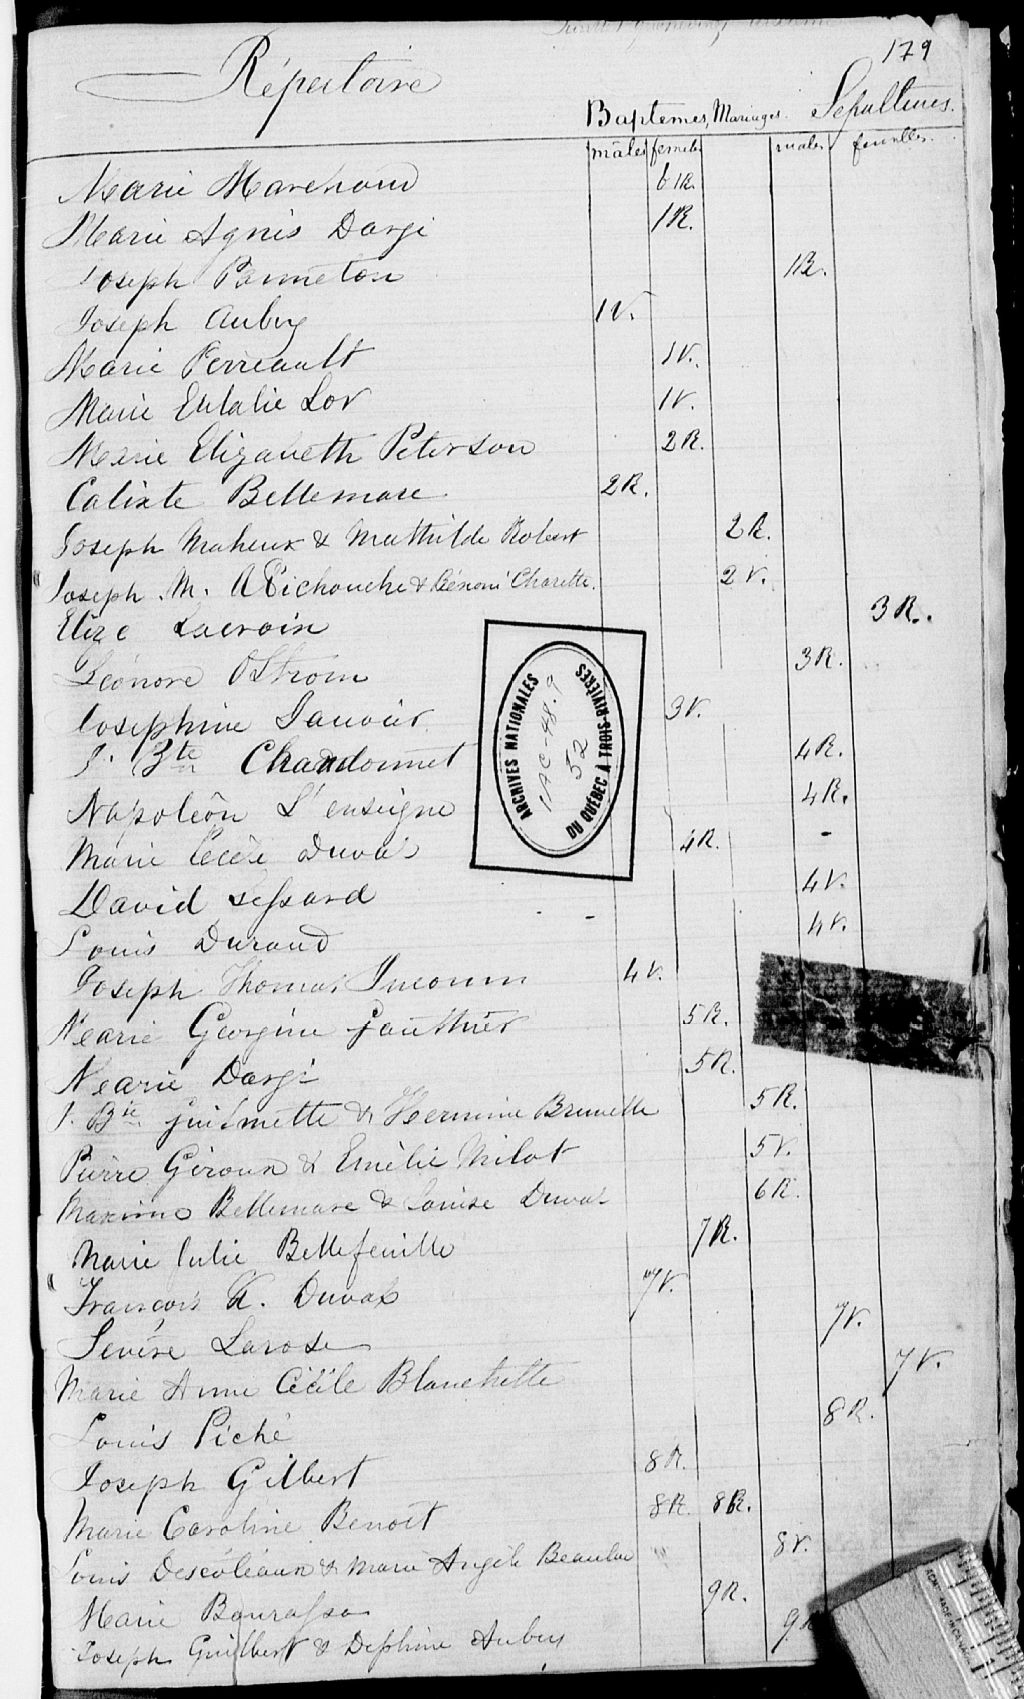 179
Répertoire
Baptemes, Mariages. Sepultures.
mâles femelles males femelles
Marie Marchand 61R.
Marie Agnès Dargi 1R.
Joseph Panneton 1R.
Joseph Aubry 1V.
Marie Perreault 1V.
Marie Eulalie Lor 1V.
Marie Elizabeth Peterson 2R.
Calixte Bellemare 2R.
Joseph Maheux & Mathilde Robert 2R.
Joseph . M. & Bénoni Charette. 2V.
Elize Lacroix 3R.
Léonore 3R.
Josephine Janvier 3V.
J. Bte Chandonnet 4R.
Napoléon L'enseigne 4R.
Marie Cécile Duval 4R.
David Lessard 4V.
Louis Durand 4V.
Joseph Thomas Inconnu 4V.
Marie Georgine Gauthier 5R.
Marie Dargi 5R.
J. Bte Guilmette & Hermine Brunelle 5R.
Pierre Giroux & Emélie Milot 5V.
Maxime Bellemare & Louise Duval 6R.
Marie Julie Bellefeuille 7R.
François X. Duval 7V.
Sevère Larose 7V.
Marie Anne Cécile Blanchette 7V.
Louis Piché 8R.
Joseph Gilbert 8R.
Marie Caroline Benoit 8R. 8R.
Louis Descôteaux & Marie Angèle Beaulac 8V.
Marie Bourassa 9R.
Joseph Guilbert & Delphine Aubry 9R
ARCHIVES NATIONALES
1AC-48.9
52
DU QUÉBEC À TROIS-RIVIÈRES